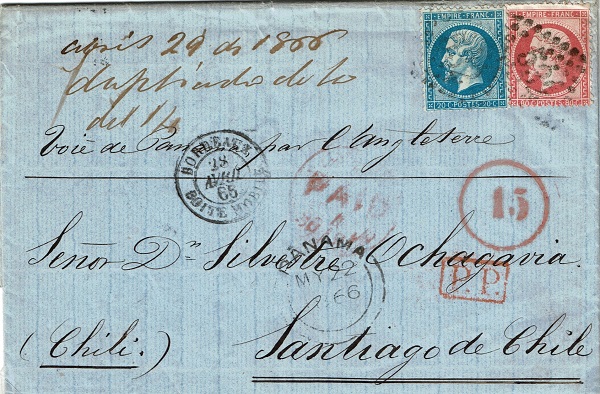 EMPIRE FRANC.
20 C POSTES 20 C
EMPIRE FRANC.
80 C
april 29 de 1866
duplicado de la
del 14
Voie de Panama par l'Angleterre
BORDEAUX
28
AVRIL
BOITE MOBILE
PAID
15
PANAMA
MY 22
66
P.P.
Señor Dn Silvestre Ochagavia
(Chili.) Santiago de Chile